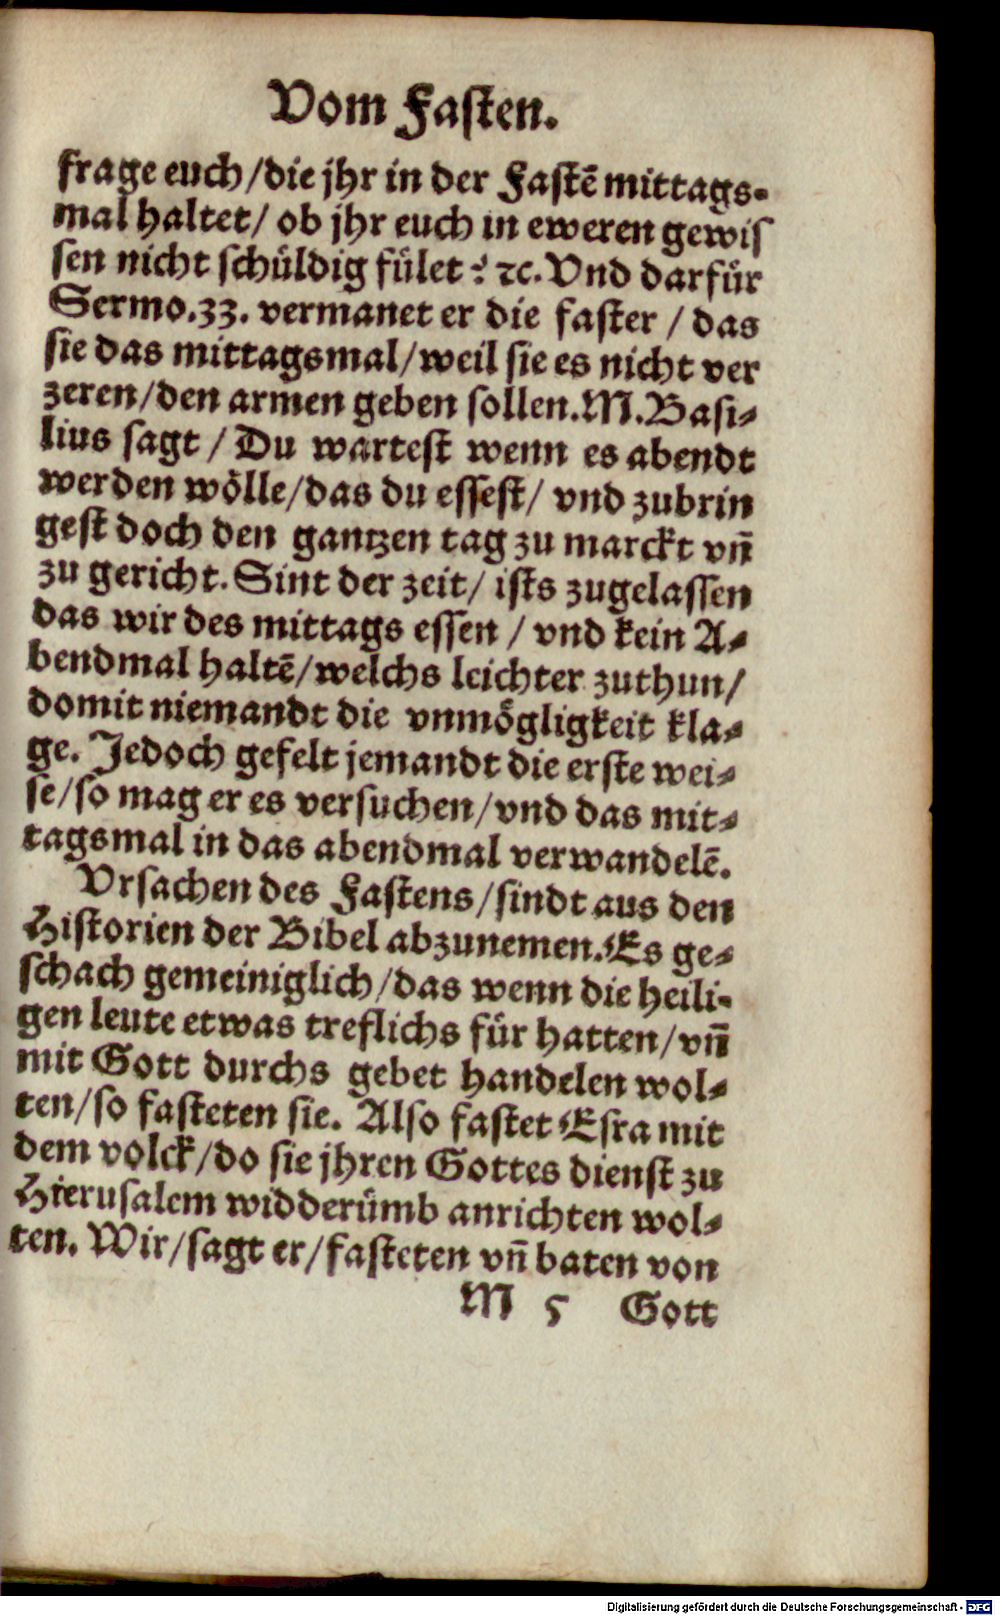 Vom Fasten.
frage euch/die jhr in der Fastē mittags⸗
mal haltet/ ob jhr euch in eweren gewis
sen nicht schüldig fület? ꝛc. Vnd darfür
Sermo.33. vermanet er die faster / das
sie das mittagsmal/weil sie es nicht ver
zeren/den armen geben sollen.M.Basi⸗
lius sagt / Du wartest wenn es abendt
werden wölle/das du essest/ vnd zubrin
gest doch den gantzen tag zu marckt vñ
zu gericht. Sint der zeit/ ists zugelassen
das wir des mittags essen / vnd kein A⸗
bendmal haltē/welchs leichter zuthun/
domit niemandt die vnmögligkeit kla⸗
ge. Jedoch gefelt jemandt die erste wei⸗
se/so mag er es versuchen/vnd das mit⸗
tagsmal in das abendmal verwandelē.
Vrsachen des Fastens/sindt aus den
Historien der Bibel abzunemen.Es ge⸗
schach gemeiniglich/das wenn die heili⸗
gen leute etwas treflichs für hatten/vñ
mit Gott durchs gebet handelen wol⸗
ten/so fasteten sie. Also fastet Esra mit
dem volck/do sie jhren Gottes dienst zu
Hierusalem widderümb anrichten wol⸗
ten. Wir/sagt er/fasteten vñ baten von
M 5 Gott
Digitalisierung gefördert durch die Deutsche Forschungsgemeinschaft - DFG